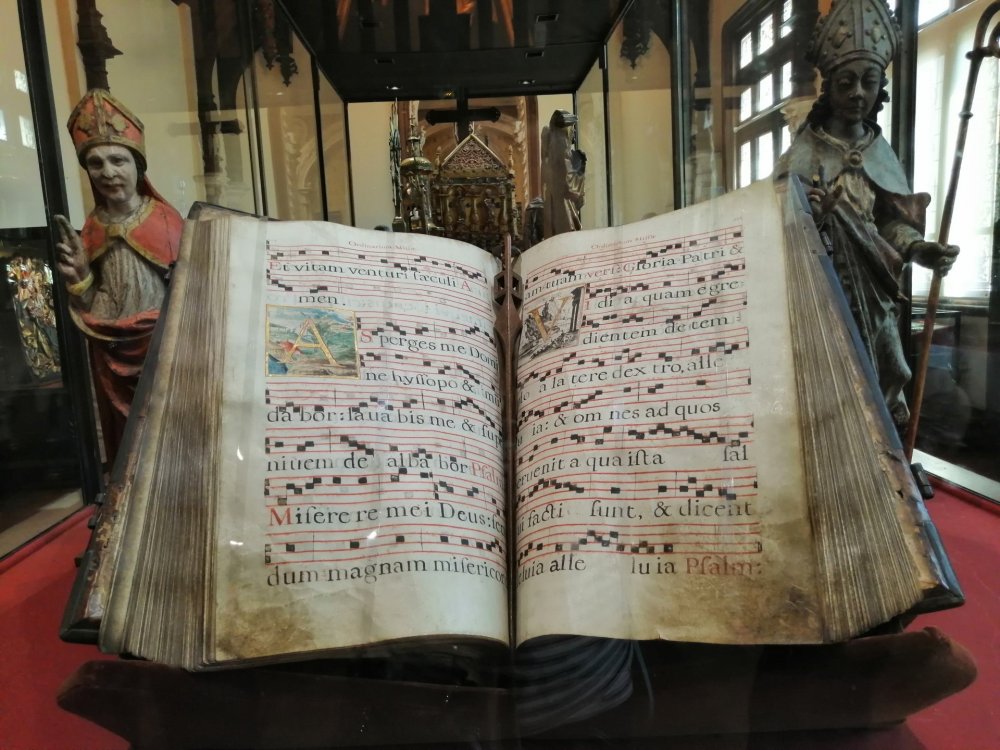 Ordinarium Miſſæ
Et vitam venturi ſæculi A
men.
A
Sperges me Dom
ne hyſſopo &
da bor: laua bis me & ſup
niuem de alba bor. Pſal
Miſere re mei Deus:
dum magnam miſericor
Ordinarium Miſſæ
am tuam verſ: Gloria Patri &
V
I di a quam egre
dientem de tem
a la tere dex tro, alle
ia: & om nes ad quos
eruenit a qua iſta ſal
ui facti ſunt, & dicent
eluia alle lu ia Pſalm: